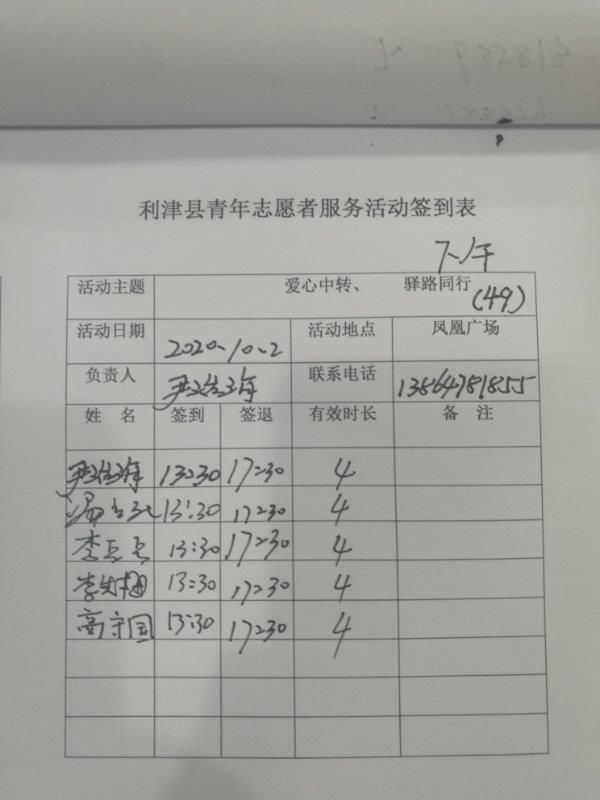 利津县青年志愿者服务活动签到表
下午
活动主题 爱心中转、 驿路同行
(49)
活动日期 2020.10.2 活动地点 凤凰广场
负责人 联系电话 13864781855
姓 名 签到 签退 有效时长 备 注
13:30 17:30 4
13:30 17:30 4
13:30 17:30 4
13:30 17:30 4
高守国 13:30 17:30 4